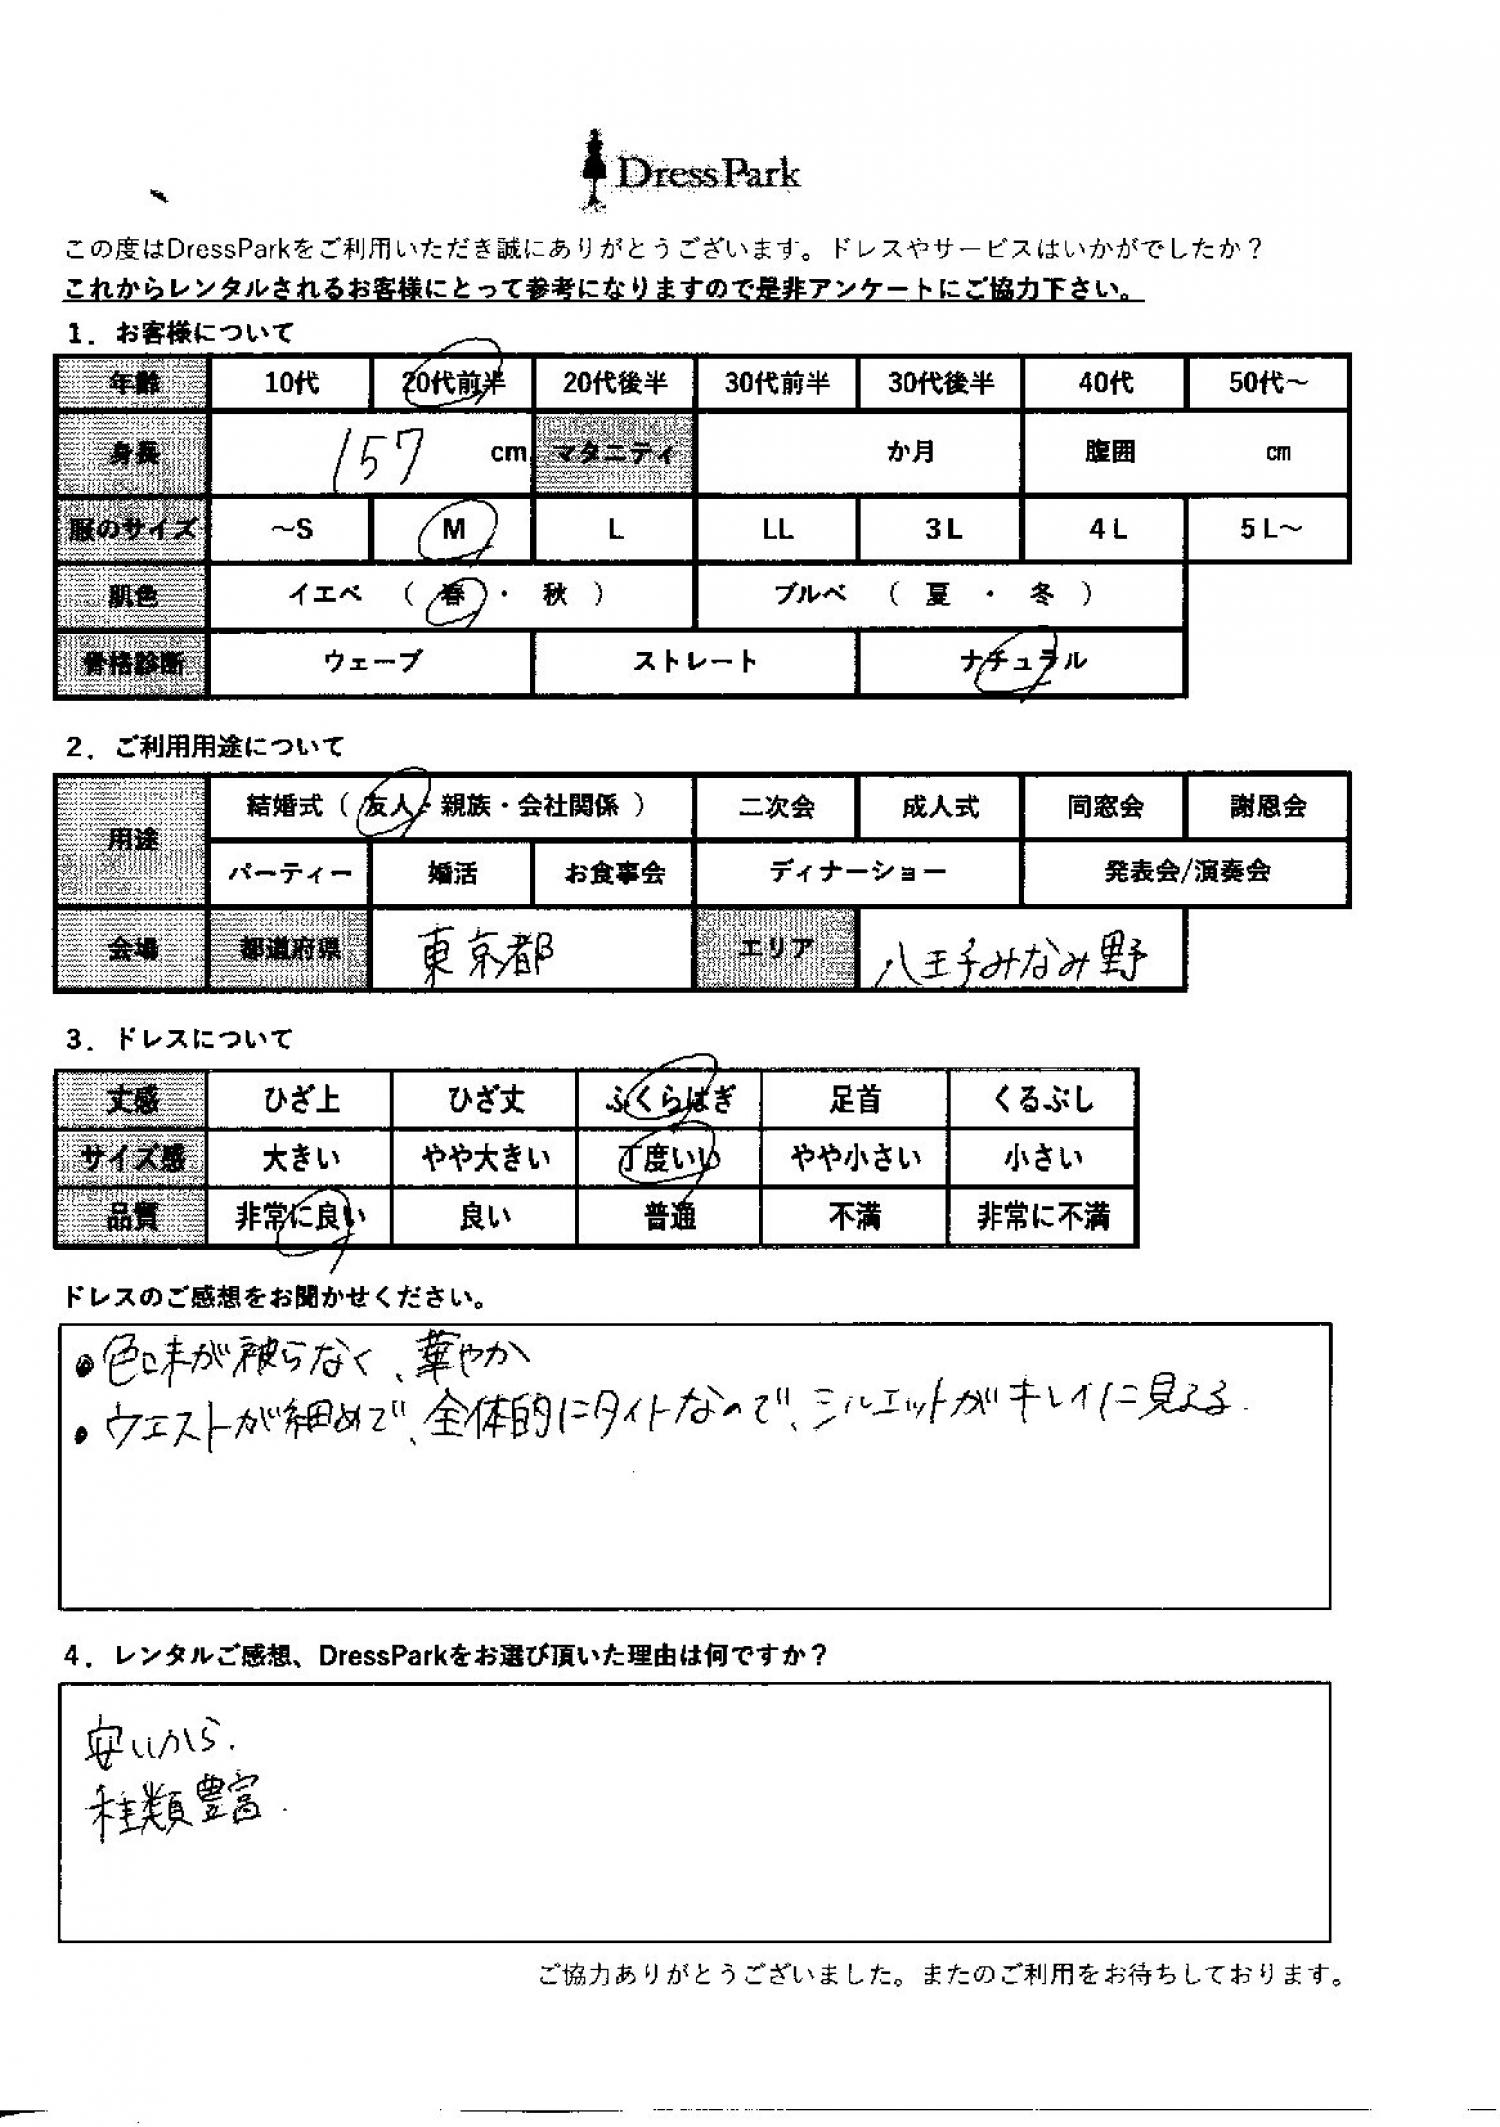 DressPark
この度はDressParkをご利用いただき誠にありがとうございます。ドレスやサービスはいかがでしたか？
これからレンタルされるお客様にとって参考になりますので是非アンケートにご協力下さい。
1．お客様について
年齢 10代 20代前半 20代後半 30代前半 30代後半 40代 50代～
身長 157 cm マタニティ か月 腹囲 cm
服のサイズ ～S M L LL 3L 4L 5L～
肌色 イエベ （ 春 ・ 秋 ） ブルベ （ 夏 ・ 冬 ）
骨格診断 ウェーブ ストレート ナチュラル
2．ご利用用途について
用途 結婚式（ 友人・親族・会社関係 ） 二次会 成人式 同窓会 謝恩会
パーティー 婚活 お食事会 ディナーショー 発表会/演奏会
会場 都道府県 東京都 エリア 八王子みなみ野
3．ドレスについて
丈感 ひざ上 ひざ丈 ふくらはぎ 足首 くるぶし
サイズ感 大きい やや大きい 丁度いい やや小さい 小さい
品質 非常に良い 良い 普通 不満 非常に不満
ドレスのご感想をお聞かせください。
●色味が被らなく、華やか
●ウエストが細めで、全体的にタイトなので、シルエットがキレイに見える.
4．レンタルご感想、DressParkをお選び頂いた理由は何ですか？
安いから.
種類豊富.
ご協力ありがとうございました。またのご利用をお待ちしております。